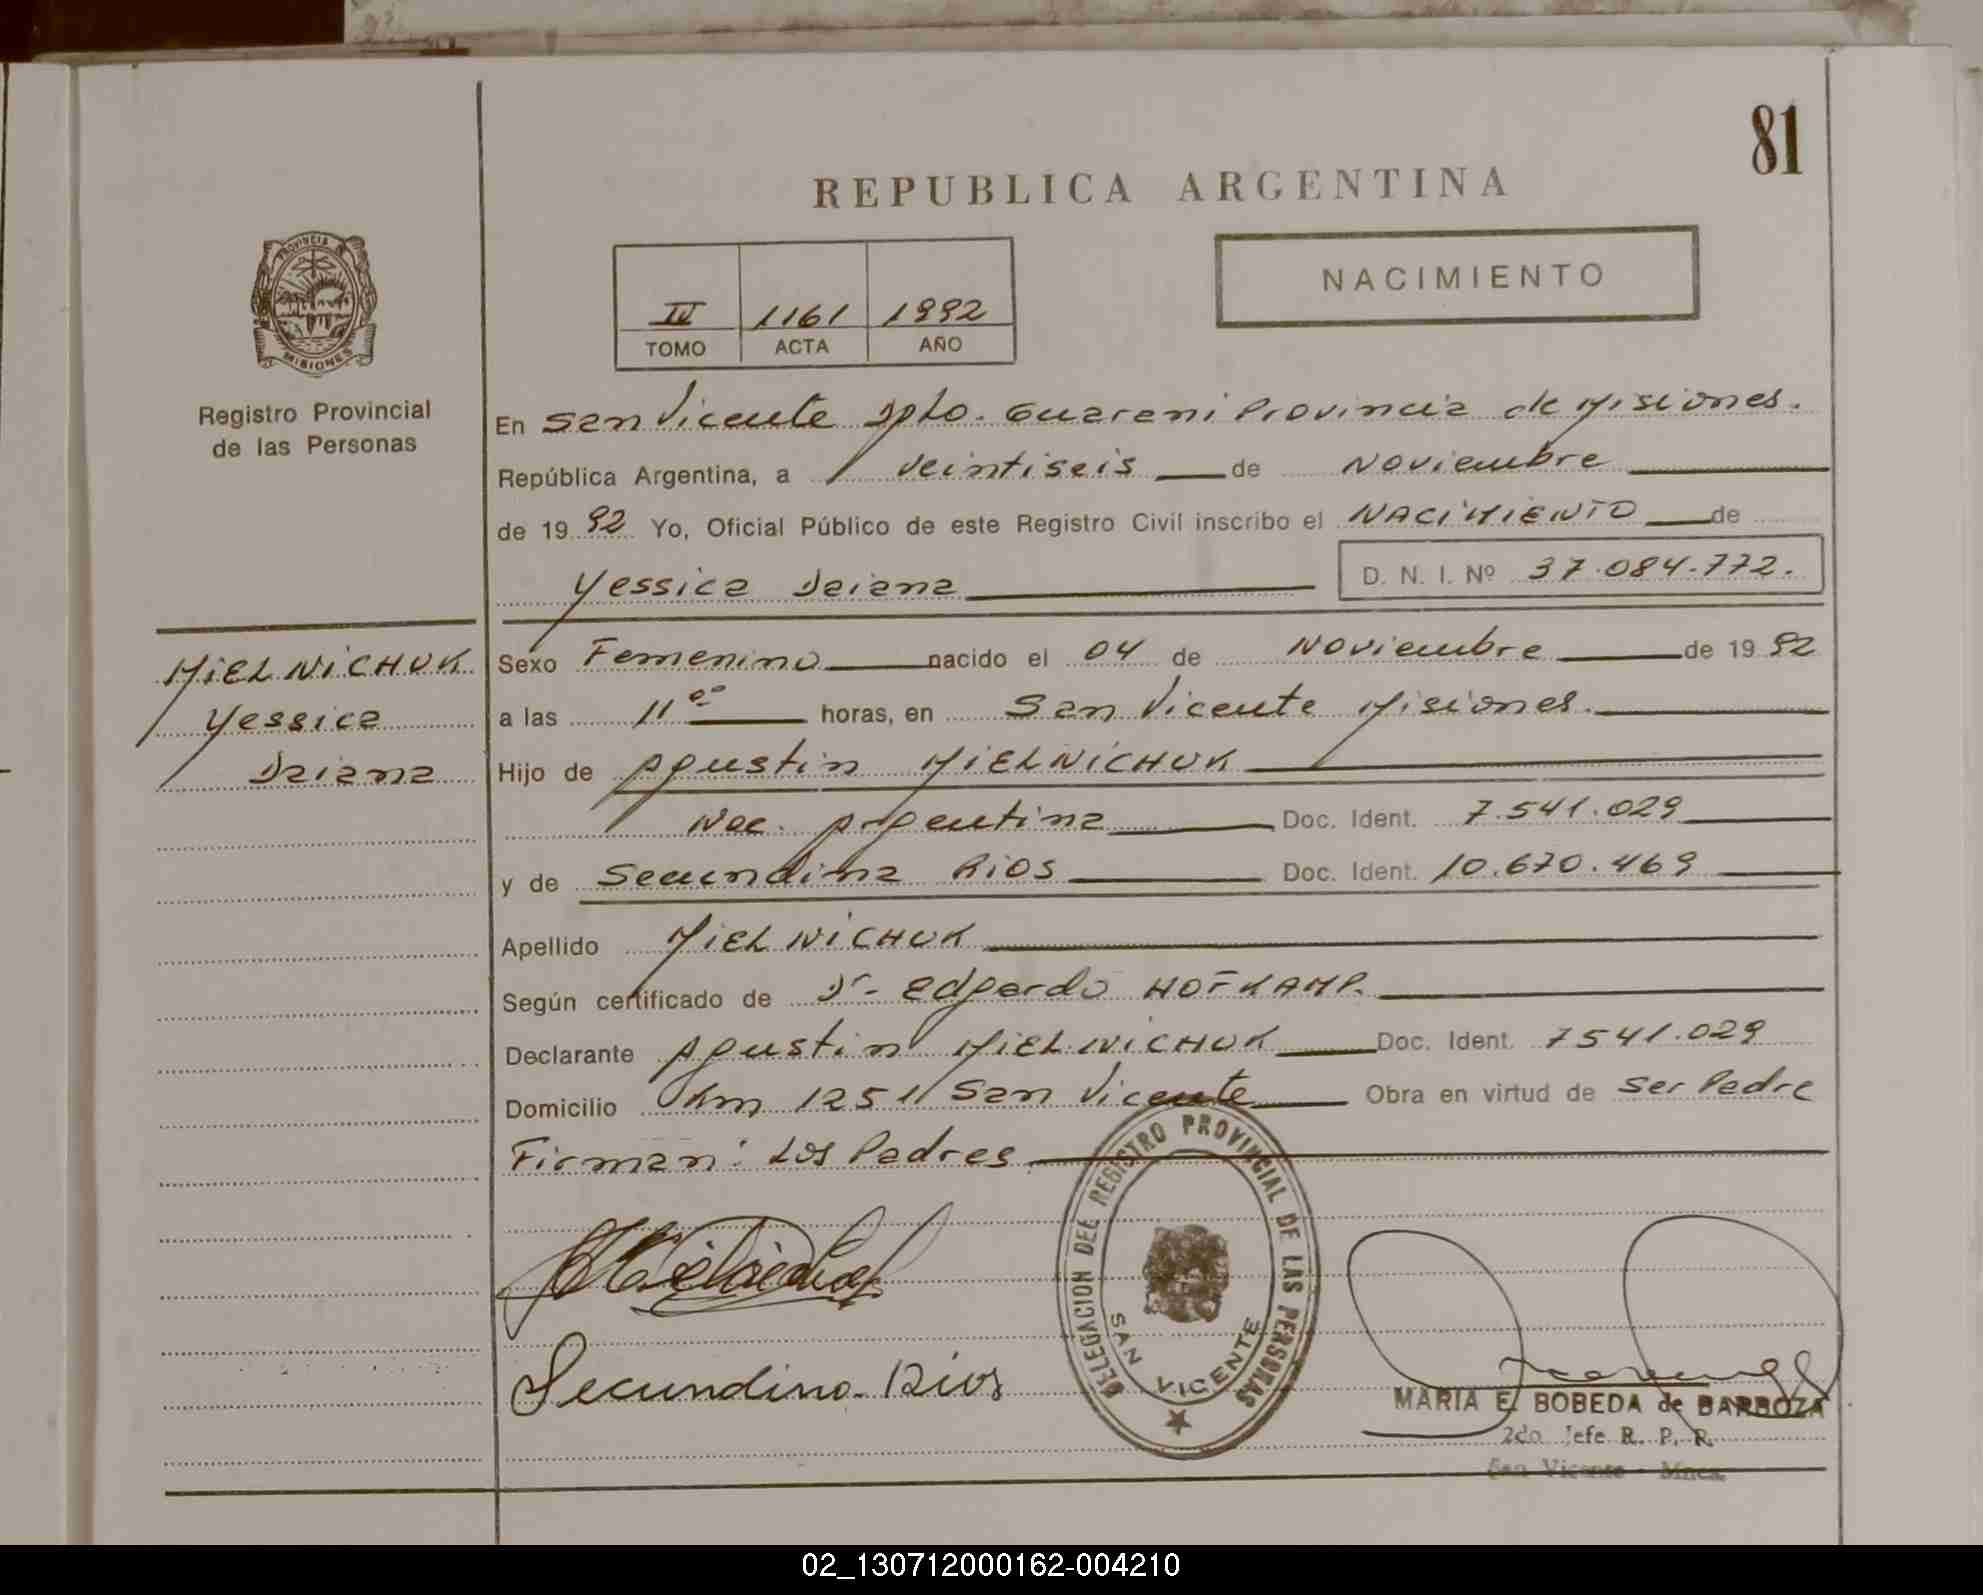 81
REPUBLICA ARGENTINA
PROVINCIA
MISIONES
IV 1161 1992
TOMO ACTA AÑO
NACIMIENTO
Registro Provincial
de las Personas
En San Vicente Dpto. Guarani Provincia de Misiones.
República Argentina, a veintiseis de Noviembre
de 19 92 Yo, Oficial Público de este Registro Civil inscribo el NACIMIENTO de
Yessica Daiana D. N. I. Nº 37.084.772.
MIELNICHUK
Yessica
Daiana
Sexo Femenino nacido el 04 de Noviembre de 19 92
a las 11 oo horas, en San Vicente Misiones.
Hijo de Agustin MIELNICHUK
Nac. Argentina Doc. Ident. 7.541.029
y de Secundina RIOS Doc. Ident. 10.670.469
Apellido MIELNICHUK
Según certificado de Dr. Edgardo HOFKAMP.
Declarante Agustin MIELNICHUK Doc. Ident. 7541.029
Domicilio Km 1251 San Vicente Obra en virtud de ser Padre
Firman: Los Padres
DELEGACION DEL REGISTRO PROVINCIAL DE LAS PERSONAS
SAN VICENTE
Secundina Rios
MARIA E. BOBEDA de BARBOZA
2do Jefe R. P. R.
San Vicente - Mnes.
02_130712000162-004210